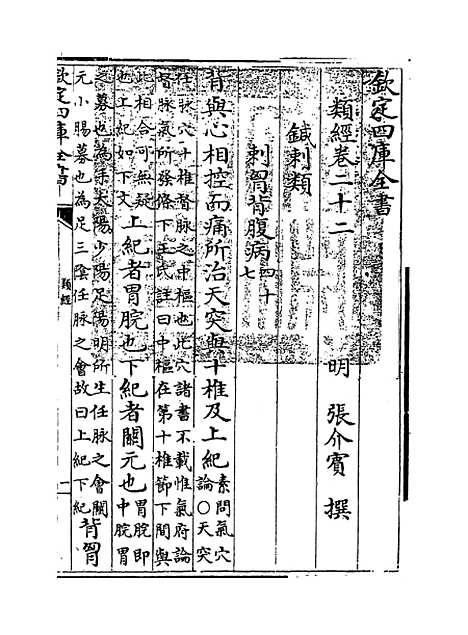 欽定四庫全書
類經卷二十二
明 張介賓 撰
鍼刺類
刺胷背腹病四十七
背與心相控而痛所治天突與十椎及上紀素問氣穴論○天突
任脉穴十椎督脉之中樞也此穴諸書不載惟氣府論
督脉氣所發條下王氏註曰中樞在第十椎節下間與
此相合可無疑也上紀如下文上紀者胃脘也下紀者關元也胃脘即中脘胃
之募也為手太陽少陽足陽明所生任脉之會關
元小腸募也為足三陰任脉之會故曰上紀下紀背胷
欽定四庫全書
類經
一